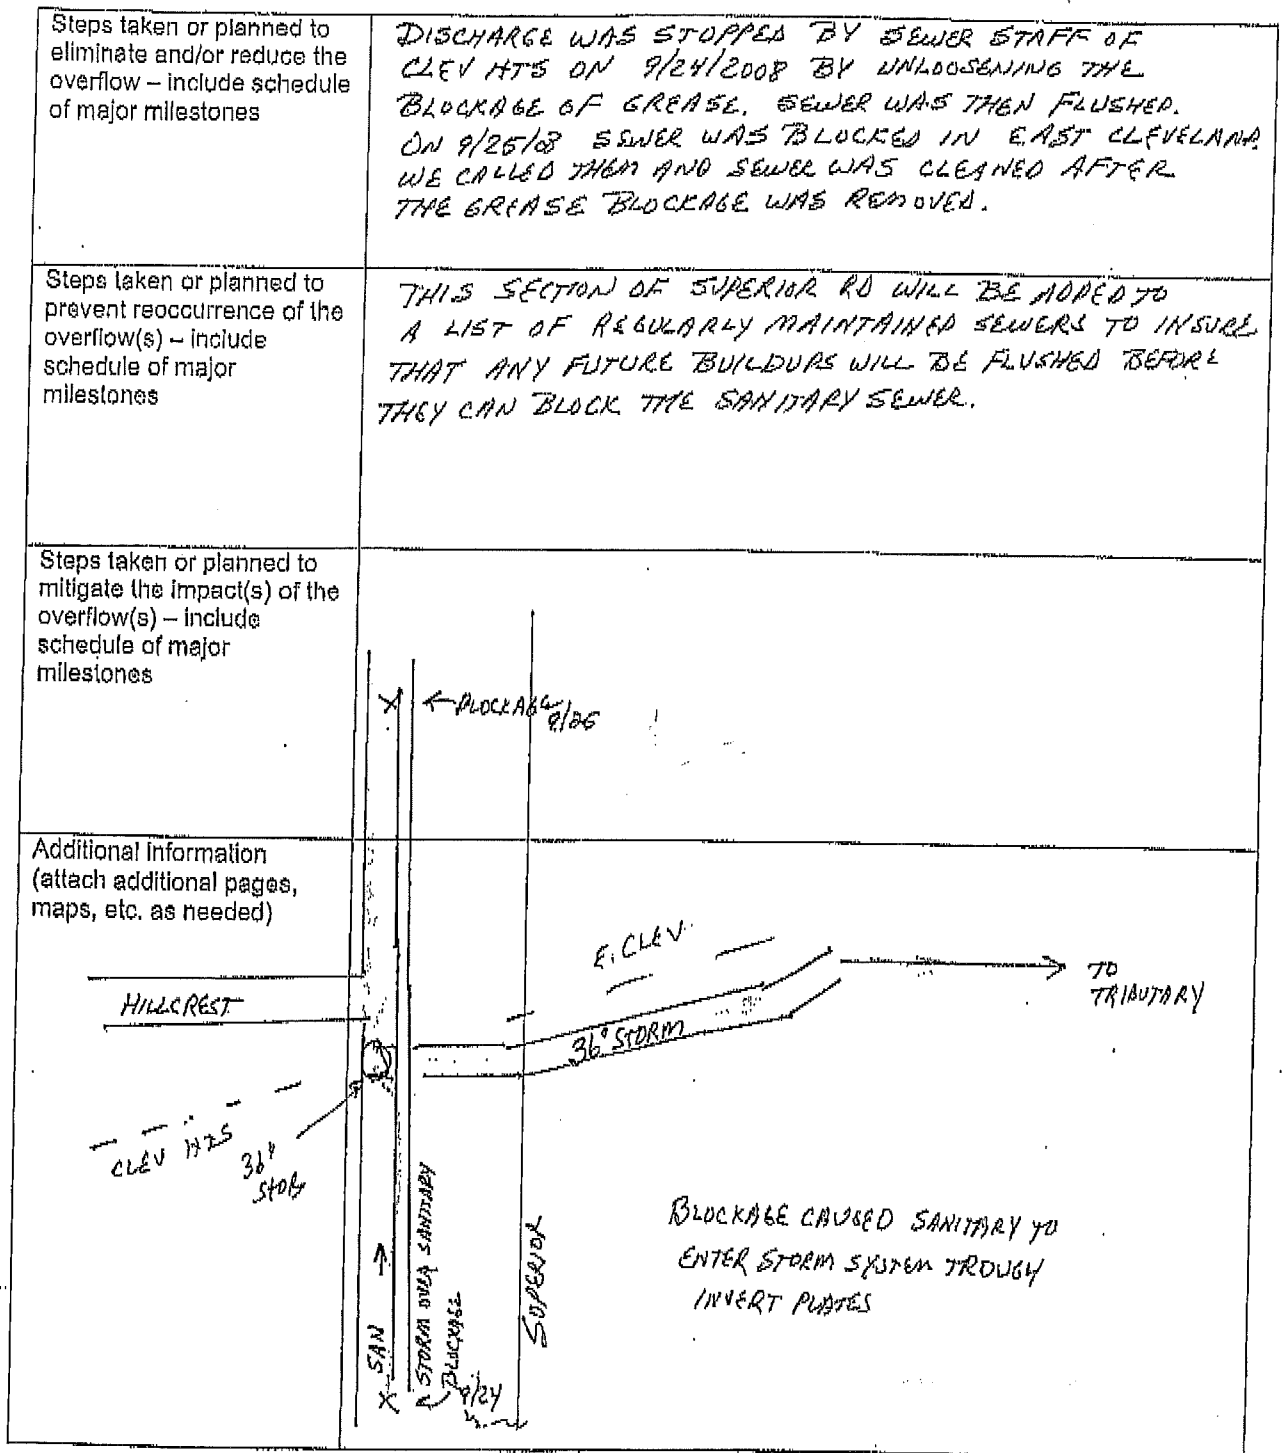 Steps taken or planned to
eliminate and/or reduce the
overflow – include schedule
of major milestones
DISCHARGE WAS STOPPED BY SEWER STAFF OF
CLEV HTS ON 9/24/2008 BY UNLOOSENING THE
BLOCKAGE OF GREASE. SEWER WAS THEN FLUSHED.
ON 9/25/08 SEWER WAS BLOCKED IN EAST CLEVELAND.
WE CALLED THEM AND SEWER WAS CLEANED AFTER
THE GREASE BLOCKAGE WAS REMOVED.
Steps taken or planned to
prevent reoccurrence of the
overflow(s) – include
schedule of major
milestones
THIS SECTION OF SUPERIOR RD WILL BE ADDED TO
A LIST OF REGULARLY MAINTAINED SEWERS TO INSURE
THAT ANY FUTURE BUILDUPS WILL BE FLUSHED BEFORE
THEY CAN BLOCK THE SANITARY SEWER.
Steps taken or planned to
mitigate the impact(s) of the
overflow(s) – include
schedule of major
milestones
X ← BLOCKAGE
9/25
Additional information
(attach additional pages,
maps, etc. as needed)
E. CLEV.
TO
TRIBUTARY
HILLCREST
36" STORM
CLEV HTS
36"
STOR
SAN
STORM OVER SANITARY
BLOCKAGE
X 9/24
SUPERIOR
BLOCKAGE CAUSED SANITARY TO
ENTER STORM SYSTEM TROUGH
INVERT PLATES